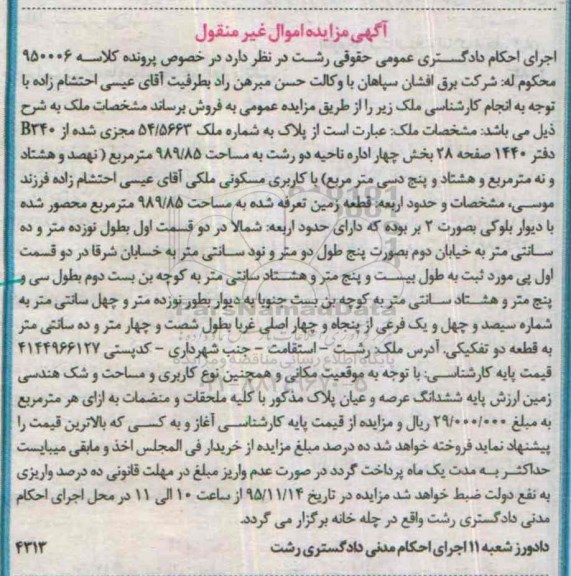 آگهی مزایده اموال غیر منقول
اجرای احکام دادگستری عمومی حقوقی رشت در نظر دارد در خصوص پرونده کلاسه ۹۵۰۰۰۶
محکوم له: شرکت برق افشان سپاهان با وکالت حسن میرهن راد بطرفیت آقای عیسی احتشام زاده با
توجه به انجام کارشناسی ملک زیر را از طریق مزایده عمومی به فروش برساند مشخصات ملک به شرح
ذیل می باشد: مشخصات ملک: عبارت است از پلاک به شماره ملک ۵۴/۵۶۶۳ مجزی شده از B۲۴۰
دفتر ۱۴۴۰ صفحه ۲۸ بخش چهار اداره ناحیه دو رشت به مساحت ۹۸۹/۸۵ مترمربع (نهصد و هشتاد
و نه مترمربع و هشتاد و پنج دسی متر مربع) با کاربری مسکونی ملکی آقای عیسی احتشام زاده فرزند
موسی، مشخصات و حدود اربعه: قطعه زمین تعرفه شده به مساحت ۹۸۹/۸۵ مترمربع محصور شده
با دیوار بلوکی بصورت ۲ بر بوده که دارای حدود اربعه: شمالا در دو قسمت اول بطول نوزده متر و ده
سانتی متر به خیابان دوم بصورت پنج طول دو متر و نود سانتی متر به خسابان شرقا در دو قسمت
اول پی مورد ثبت به طول بیست و پنج متر و هشتاد سانتی متر به کوچه بن بست دوم بطول سی و
پنج متر و هشتاد سانتی متر به کوچه بن بست جنوبا به دیوار بطور نوزده متر و چهل سانتی متر به
شماره سیصد و چهل و یک فرعی از پنجاه و چهار اصلی غربا بطول شصت و چهار متر و ده سانتی متر
به قطعه دو تفکیکی. آدرس ملک: رشت - استقامت - جنب شهرداری - کدپستی ۴۱۴۴۹۶۶۱۲۷
قیمت پایه کارشناسی: با توجه به موقعیت مکانی و همچنین نوع کاربری و مساحت و شک هندسی
زمین ارزش پایه ششدانگ عرصه و عیان پلاک مذکور با کلیه ملحقات و منضمات به ازای هر مترمربع
به مبلغ ۲۹/۰۰۰/۰۰۰ ریال و مزایده از قیمت پایه کارشناسی آغاز و به کسی که بالاترین قیمت را
پیشنهاد نماید فروخته خواهد شد ده درصد مبلغ مزایده از خریدار فی المجلس اخذ و مابقی میبایست
حداکثر به مدت یک ماه پرداخت گردد در صورت عدم واریز مبلغ در مهلت قانونی ده درصد واریزی
به نفع دولت ضبط خواهد شد مزایده در تاریخ ۹۵/۱۱/۱۴ از ساعت ۱۰ الی ۱۱ در محل اجرای احکام
مدنی دادگستری رشت واقع در چله خانه برگزار می گردد.
دادورز شعبه ۱۱ اجرای احکام مدنی دادگستری رشت ۴۳۱۳
ParsNamadData